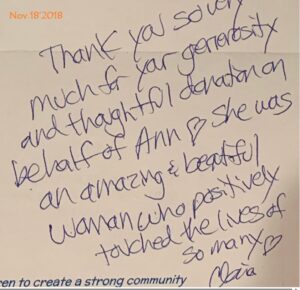 Nov 18 2018
Thank you so very
much for your generosity
and thoughtful donation on
behalf of Ann ♡ She was
an amazing & beautiful
woman who positively
touched the lives of
so many ♡
Maria
en to create a strong community